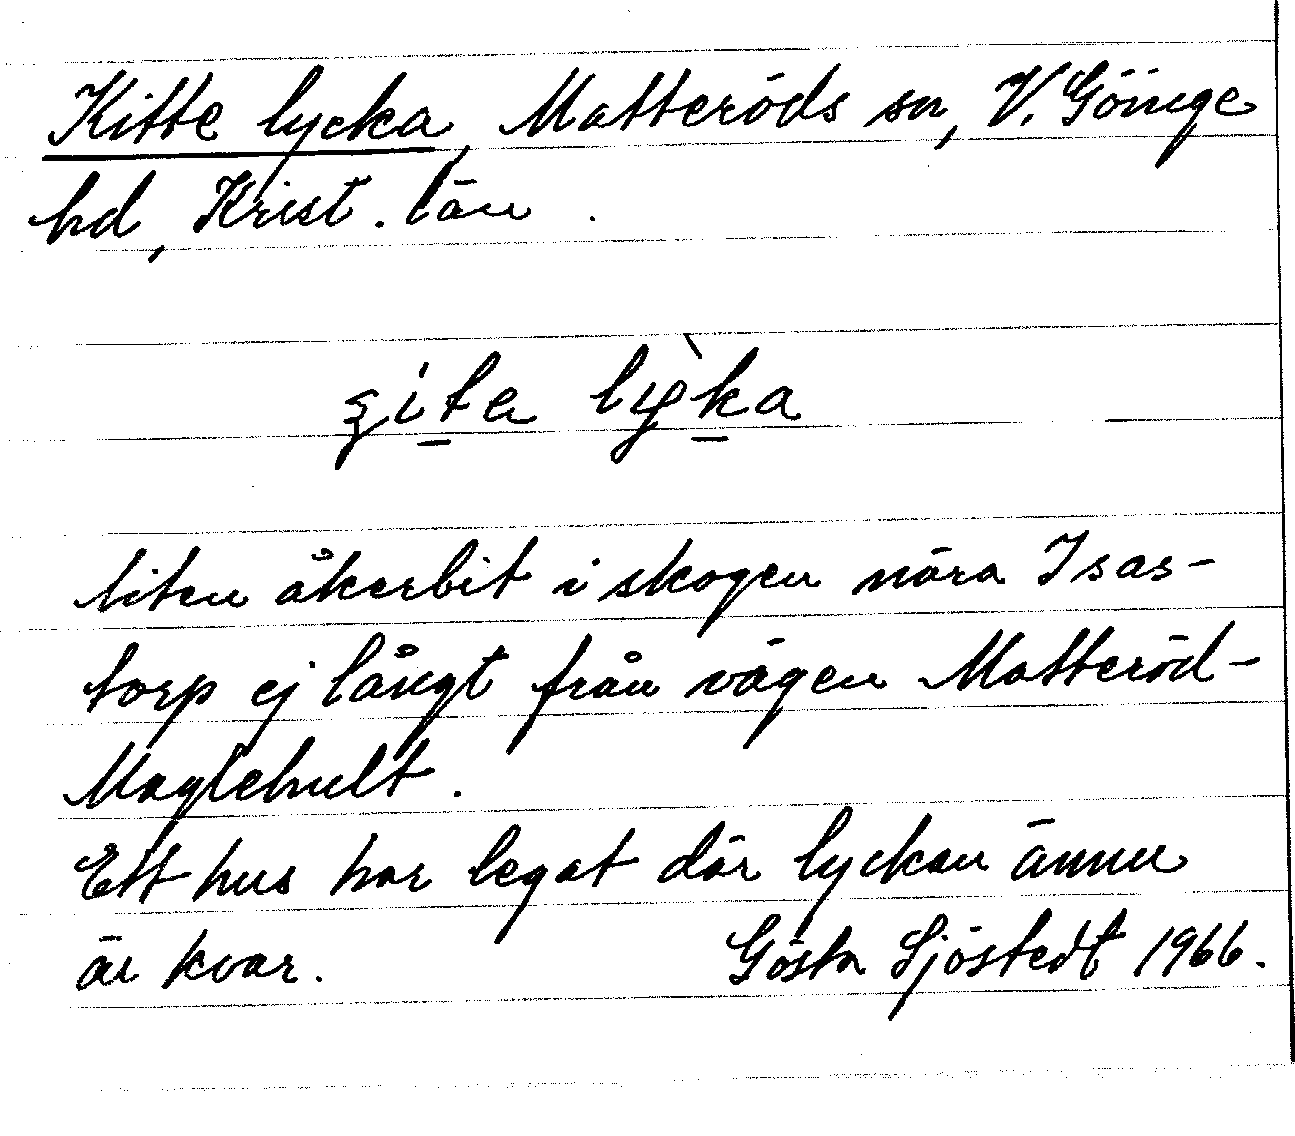 Kitte lycka, Matteröds sn, V. Göinge
hd, Krist. län.
lyka
liten åkerbit i skogen nära Isas-
torp ej långt från vägen Matteröd-
Maglehult.
Ett hus har legat där lyckan ännu
är kvar. Gösta Sjöstedt 1966.